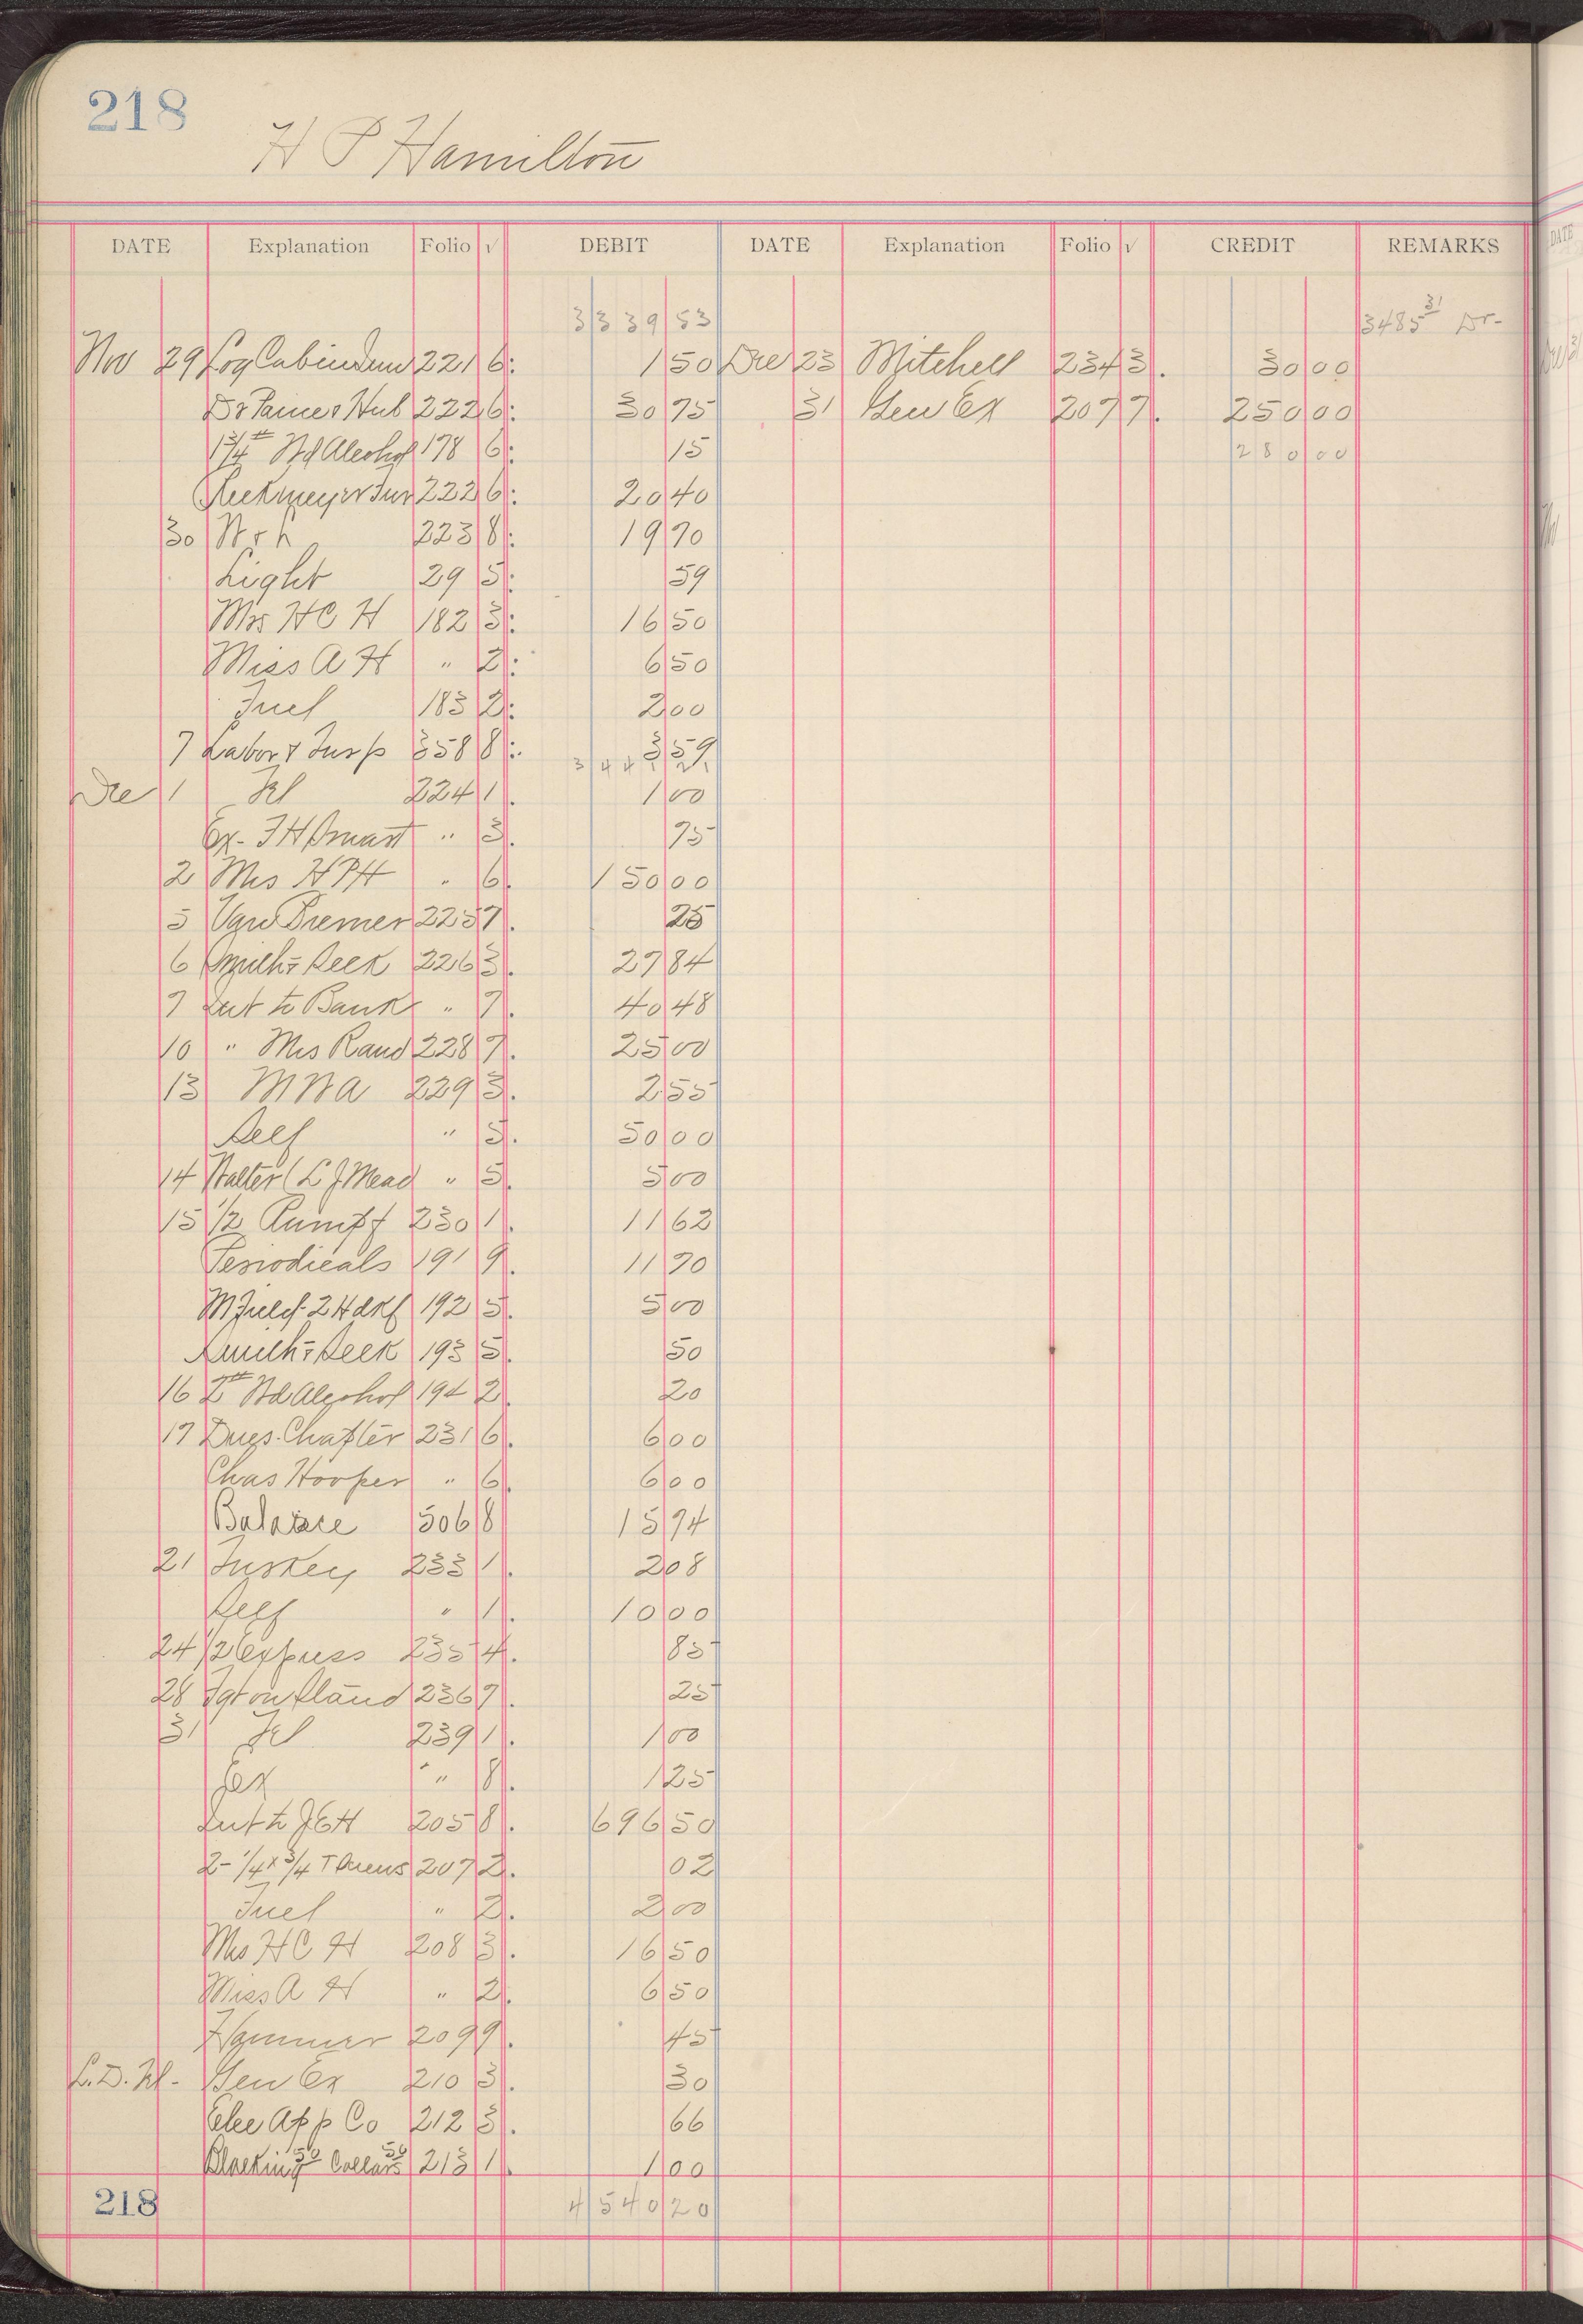 218
H P Hamilton
DATE Explanation Folio √ DEBIT DATE Explanation Folio √ CREDIT REMARKS
3339 53 3485 31 Dr-
Nov 29 Log Cabin 221 6 1 50 Dec 23 Mitchell 234 3 30 00
Hub 222 6 30 75 31 Gen Ex 207 7 250 00
1 3/4 # Wd Alcohol 178 6 15 280 00
222 6 20 40
30 W & L 223 8 19 70
Light 29 5 59
Mrs H C H 182 3 16 50
Miss A H " 2 6 50
Fuel 183 2 2 00
7 Labor & 358 8 3 59
Dec 1 Tel 224 1 1 00
Ex- F H Smart " 3 75
2 Mrs H P H " 6 150 00
5 225 7 25
6 226 3 27 84
7 Int to Bank " 7 40 48
10 " Mrs Rand 228 7 25 00
13 M W A 229 3 2 55
Self " 5 50 00
14 Walter (L J Mead " 5 5 00
15 1/2 Rumpf 230 1 11 62
Periodicals 191 9 11 70
2 Hdkf 192 5 5 00
193 5 50
16 2 # Wd Alcohol 194 2 20
17 Dues Chapter 231 6 6 00
Chas Hooper " 6 6 00
Balance 506 8 15 94
21 Turkey 233 1 2 08
Self " 1 10 00
24 1/2 Express 235 4 85
28 Fgt on Stand 236 7 25
31 Tel 239 1 1 00
" 8 1 25
Int to J E H 205 8 696 50
2- 1/4 x 3/4 T Screws 207 2 02
Fuel " 2 2 00
Mrs H C H 208 3 16 50
Miss A H " 2 6 50
Hammer 209 9 45
L.D. Tel- Gen Ex 210 3 30
Elec App Co 212 3 66
Blacking 50 Collars 50 213 1 1 00
218 4540 20